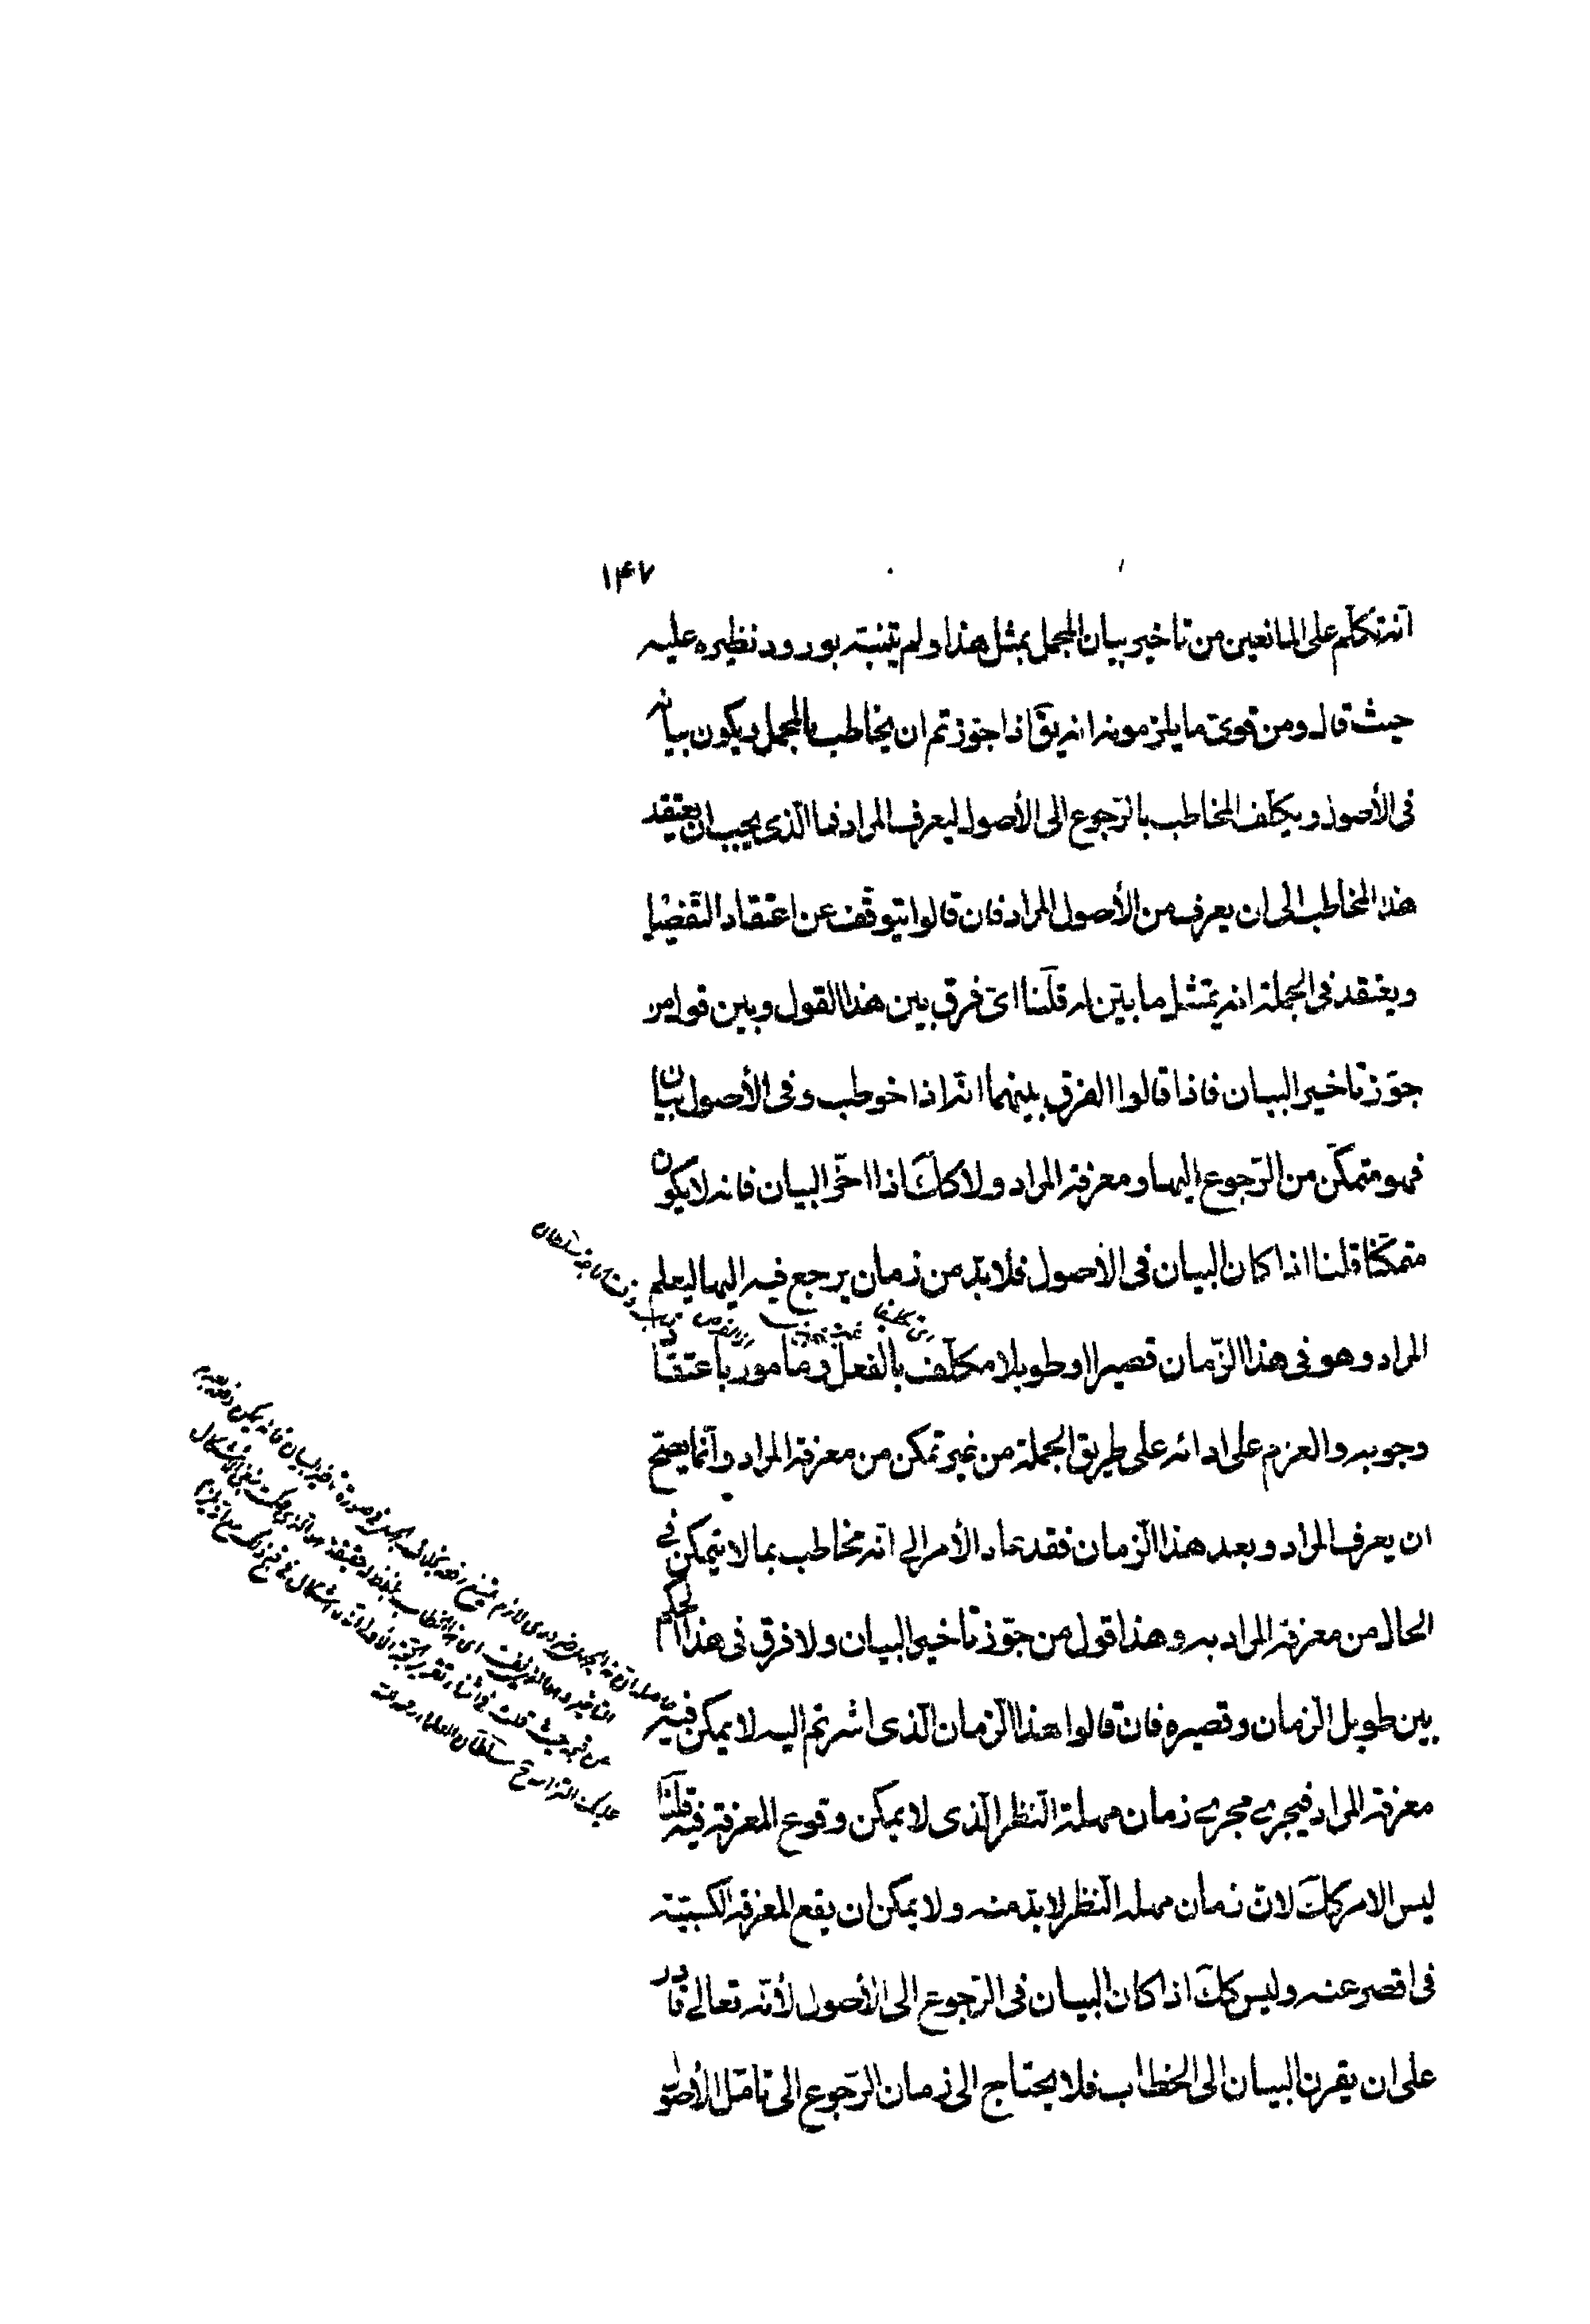 ۱۴۷
انه تكلم على المانعين من تاخير بيان المجمل بمثل هذا ولم يتنبه بورود نظيره عليه
حيث قال ومن قوى ما يلزمونه انه يقَ اذا جوزتم ان يخاطب بالمجمل ويكون بيانه
فى الأصول ويكلّف المخاطب بالرّجوع الى الأصول ليعرف المراد فما الّذى يجب ان يعتقد
هذا المخاطب الى ان يعرف من الأصول المراد فان قالوا يتوقّف عن اعتقاد التّفصيل
ويعتقد فى الجملة انه يمتثل ما بيّن له قلنا اىّ فرق بين هذا القول وبين قول من
جوّز تاخير البيان فاذا قالوا الفرق بينهما انّه اذا خوطب وفى الأصول بيان
فهو متمكّن من الرّجوع اليها ومعرفة المراد ولا ككَ اذا اخّر البيان فانه لا يكون
متمكّنا قلنا اذا كان البيان فى الأصول فلا بدّ من زمان يرجع فيه اليها ليعلم
المراد وهو فى هذا الزّمان قصيرا او طويلا مكلّف بالفعل ومامور باعتقاد
وجوبه والعزم على ادائه على طريق الجملة من غير تمكن من معرفة المراد وانّما يصحّ
ان يعرف المراد وبعد هذا الزمان فقد عاد الأمر الى انّه مخاطب بما لا يتمكن فى
الحال من معرفة المراد به وهذا قول من جوّز تاخير البيان ولا فرق فى هذا الحكم
بين طويل الزمان وقصيره فان قالوا هذا الزمان الّذى اشرتم اليه لا يمكن فيه
معرفة المراد فيجرى مجرى زمان مهلة النّظر الّذى لا يمكن وقوع المعرفة فيه قلنا
ليس الامر ككَ لانّ زمان مهلة النّظر لا بدّ منه ولا يمكن ان يقع المعرفة الكسبيّة
فى اقصر عنه وليس ككَ اذا كان البيان فى الرّجوع الى الأصول لأنّه تعالى قادر
على ان يقرن البيان الى الخطاب فلا يحتاج الى زمان الرّجوع الى تامّل الأصول